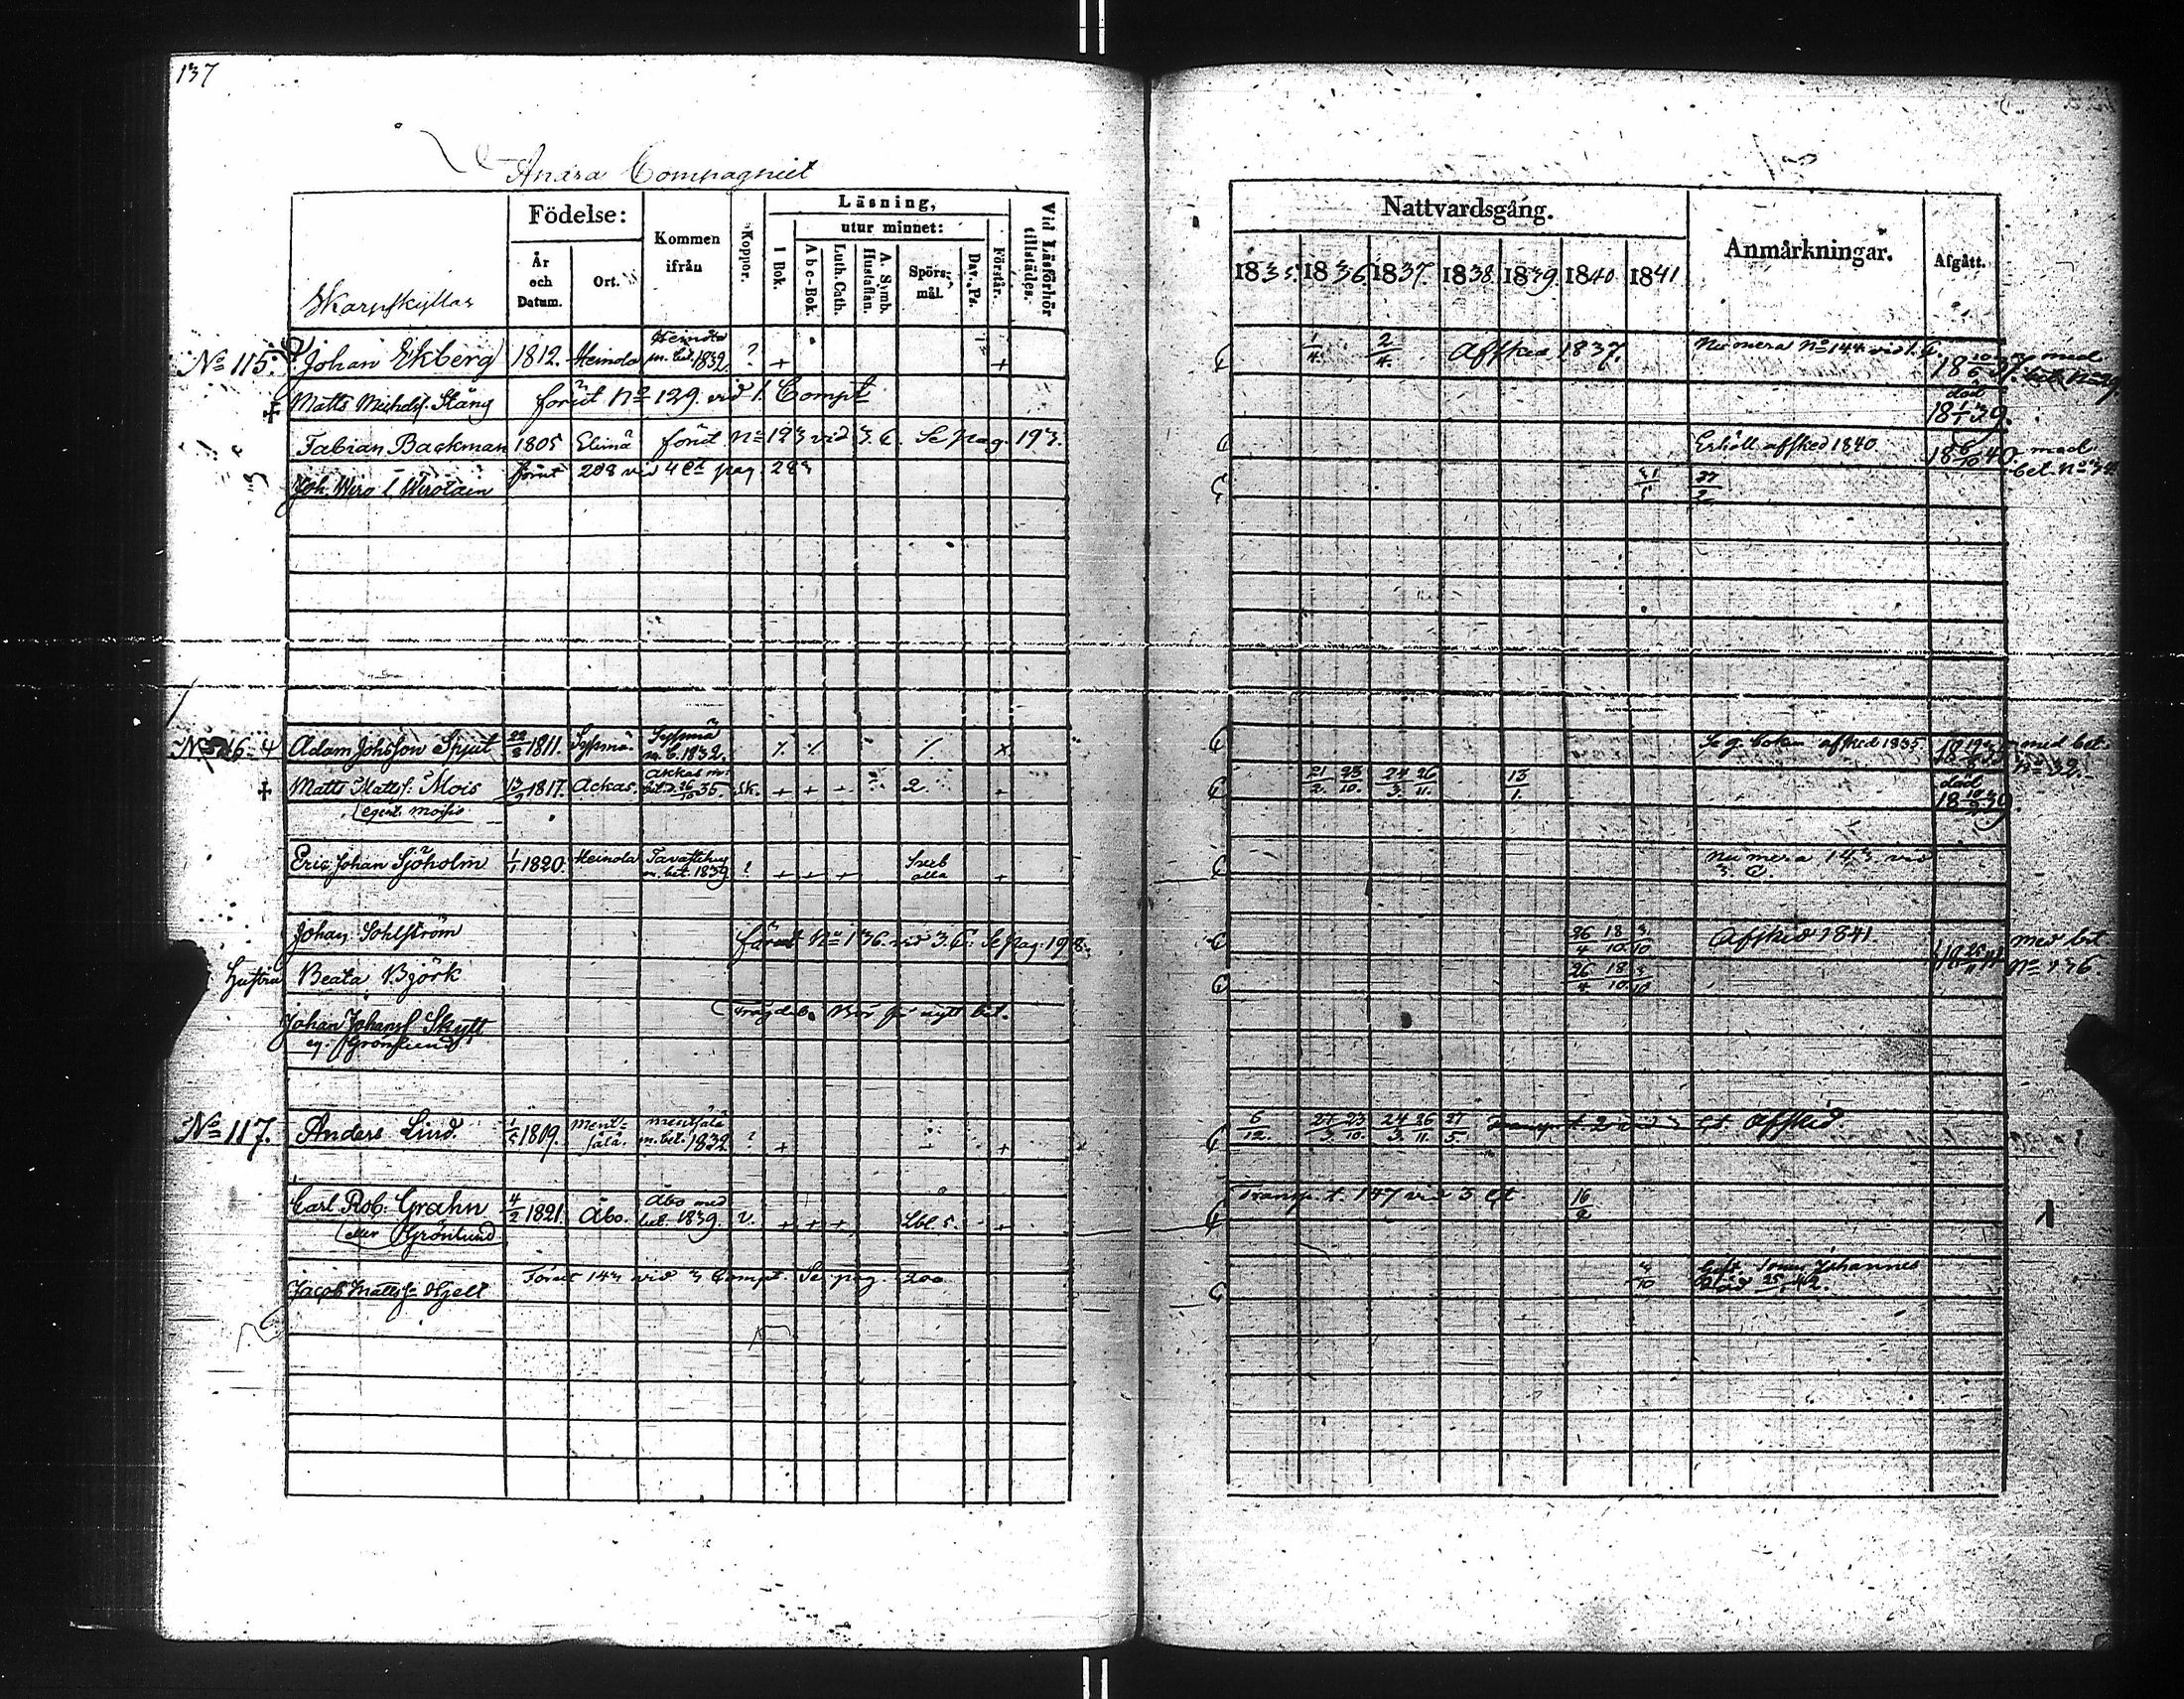 137
Andra Compagniet
Skarpskyttar
Födelse:
År och Datum.
Ort.
Kommen ifrån
Koppor.
Läsning,
I Bok.
utur minnet:
Abc-Bok.
Luth. Cath.
A. Symb. Hustaflan.
Spörs-mål.
Dav. Ps.
Förstår.
Vid Läsförhör tillstädes.
Nattvardsgång.
1835. 1836. 1837. 1838. 1839. 1840 1841
Anmärkningar.
Afgått.
No 115. Johan Ekberg 1812. Heinola Heinola m. bet. 1832. ? + + 1/4. 2/4. Afsked 1837. Numera No 144 vid 1. C. med
Matts Michelss. Stång förut No 129. vid 1. Compt död 18 1/1 39.
Fabian Backman 1805 Elimä förut No 193 vid 3. C. Se pag. 193. Erhöll afsked 1840 18 6/10 40. med bet. No
Joh. Wiro l. Wirolain förut 208 vid 4 Ct pag. 283
Adam Johsson Spjut 1811. Syssmä Syssmä m. b. 1832. Se g. boken afsked 1835. med bet. No 32.
Matts Mattss. Mois 13/9 1817. Ackas. Akkas m. bet. d. 26/10 35. sk. + + + 2. 21/2. 23/10. 24/3. 26/11. 13/1. död 18 10/2 39.
egent. Moisio
Eric Johan Sjöholm 1/1 1820. Heinola Tavastehus m. bet. 1839 ? + + + Sverb alla + Numera 143 vid 3 C.
Johan Sohlström förut No 136 vid 3. C. Se pag. 198. 26/4 18/10. 3/10 Afsked 1841. med bet No 136
Hustru Beata Björk 26/4. 18/10. 3/10
Johan Johanss. Skytt Frågdeb. Bör få nytt bet.
eg. Grönlund
No 117. Anders Lind. 1/5 1809. Ment-sälä. Mentsälä m. bet. 1832. ? + + 6/12. 27/3. 23/10. 24/3. 26/11. 27/5. Transp. t. 2 vid 3 Ct. Afsked.
Carl Rob. Grahn 4/2 1821. Åbo. Åbo med bet. 1839. ?. + + + Lbl. 5. + Transp. t. 147 vid 3 Ct 16/2
eller Grönlund
Jacob Mattss. Hjelt Förut 143 vid 3 Compt. Se pag. 200. 3/10 Gift. Sonen Johannes
död 42.